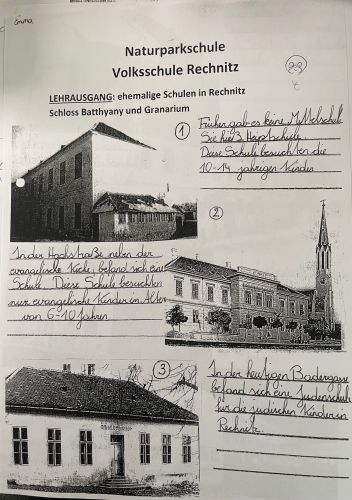 Naturparkschule
Volksschule Rechnitz
LEHRAUSGANG: ehemalige Schulen in Rechnitz
Schloss Batthyany und Granarium
1
Früher gab es keine Mittelschule
Sie hieß Hauptschule
Diese Schule besuchten die
10-14 jährigen Kinder
2
In der Hochstraße, neben der
evangelische Kirche, befand sich eine
Schule. Diese Schule besuchten
nur evangelische Kinder im Alter
von 6-10 Jahren
3
In der heutigen Badergasse
befand sich eine Judenschule
für die jüdischen Kinder in
Rechnitz.